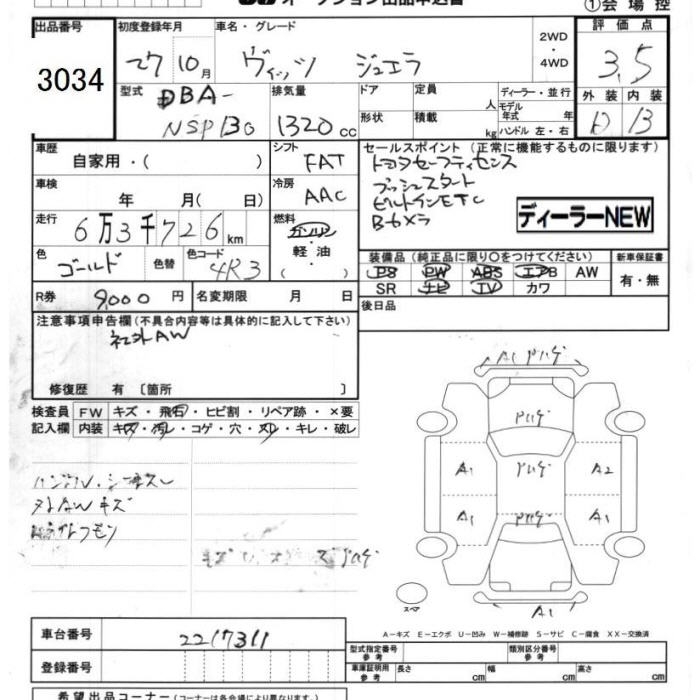 オークション出品申込書
①会場控
出品番号 初度登録年月 車名・グレード 評価点
3034 27 10月 ヴィッツ ジュエラ 2WD・4WD 3.5
型式 DBA-NSP130 排気量 1320cc ドア 定員 人 ディーラー・並行 外装 内装
形状 積載 kg モデル年式 年 ハンドル 左・右 D B
車歴 自家用・( ) シフト FAT セールスポイント (正常に機能するものに限ります)
トヨタセーフティセンス
車検 年 月( 日) 冷房 AAC プッシュスタート
ビルトインETC
Bカメラ ディーラーNEW
走行 6万3千726km 燃料 ガソリン・軽油・( )
色 ゴールド 色替 色コード 4R3
装備品 (純正品に限り○をつけてください) 新車保証書
PS PW ABS エアB AW 有・無
SR ナビ TV カワ
R券 9,000円 名変期限 月 日 後日品
注意事項申告欄 (不具合内容等は具体的に記入して下さい)
社外AW
修復歴 有 〔箇所 〕
検査員記入欄 FW キズ・飛石・ヒビ割・リペア跡・×要
内装 キズ・汚レ・コゲ・穴・ヌレ・キレ・破レ
ハンドル・シートスレ
AWキズ
A1 ハゲ
ハゲ
A1 ハゲ A2
A1 ハゲ A1
A1
スペア
A-キズ E-エクボ U-凹み W-補修跡 S-サビ C-腐食 XX-交換済
車台番号 2217311
登録番号
型式指定番号 参考 類別区分番号 参考
車庫証明用 参考 長さ cm 幅 cm 高さ cm
希望出品コーナー (コーナーは各会場により異なります。)